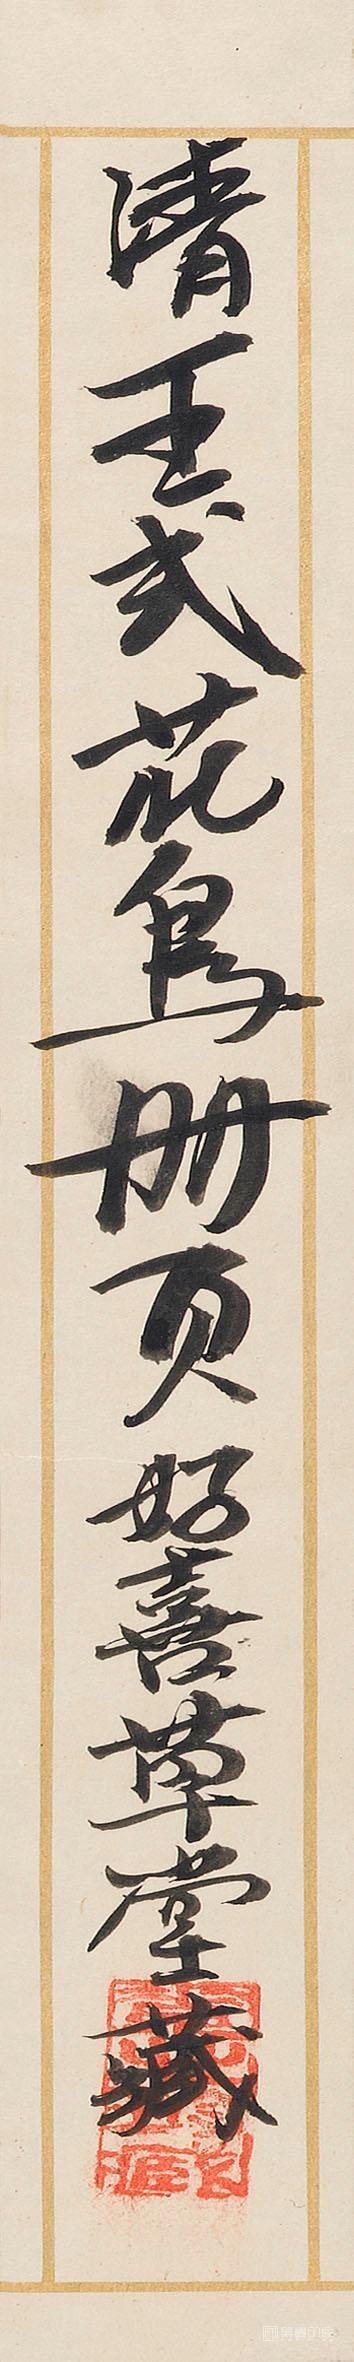 清王武花鳥册页好喜草堂藏